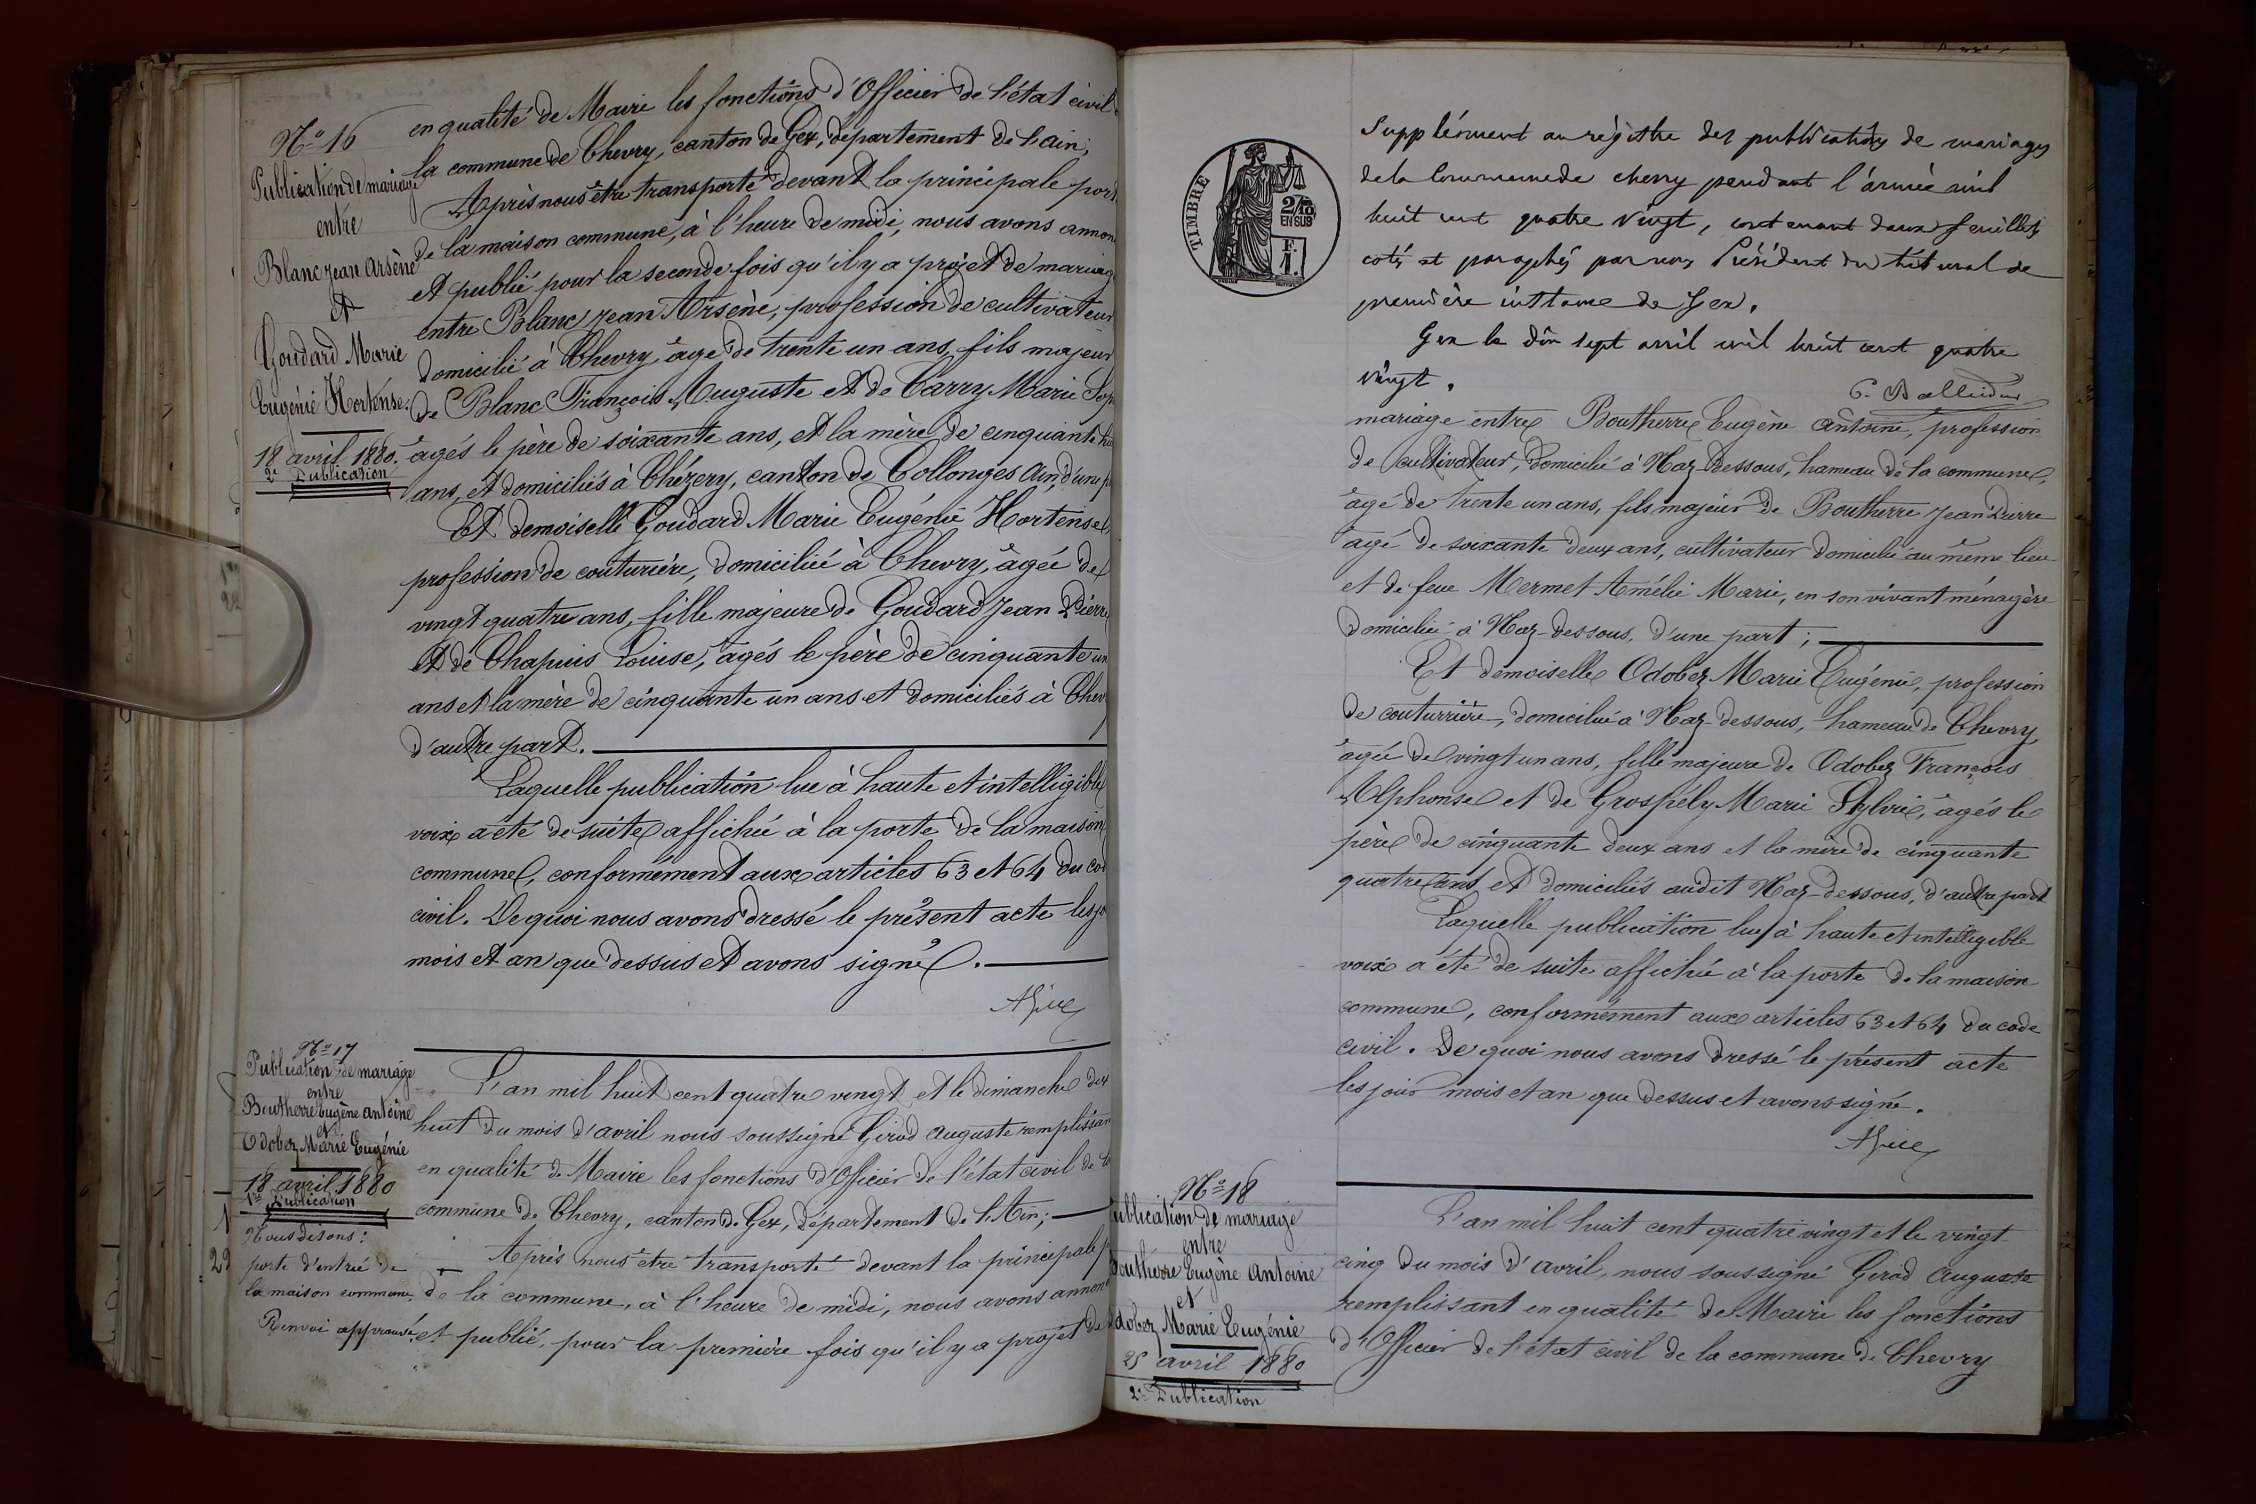 Nº 16
Publication de mariage
entre
Blanc Jean Arsène
et
Goudard Marie
Eugénie Hortense.
18 avril 1880.
2e Publication
en qualité de Maire les fonctions d'Officier de l'état civil
la commune de Chevry, canton de Gex, département de l'ain;
Après nous être transporté devant la principale port
de la maison commune, à l'heure de midi, nous avons annon
et publié pour la seconde fois qu'il y a projet de mariag
entre Blanc Jean Arsène, profession de cultivateur
domicilié à Chevry, âgé de trente un ans, fils majeur
de Blanc François Auguste et de Carry Marie
âgés le père de soixante ans, et la mère de cinquante
ans, et domiciliés à Chézery, canton de Collonges Ain, d'une p
Et demoiselle Goudard Marie Eugénie Hortense,
profession de couturière, domiciliée à Chevry, âgée de
vingt quatre ans, fille majeure de Goudard Jean Pierre
et de Chapuis Louise, âgés le père de cinquante un
ans et la mère de cinquante un ans et domiciliés à Chev
d'autre part.
Laquelle publication lue à haute et intelligible
voix a été de suite affichée à la porte de la maison
commune, conformément aux articles 63 et 64 du co
civil. De quoi nous avons dressé le présent acte les jo
mois et an que dessus et avons signé.
Nº 17
Publication de mariage
entre
Boutherre Eugène antoine
et
Odobez Marie Eugénie
18 avril 1880
1re Publication
Nous disons:
porte d'entrée de
la maison commune.
Renvoi approuvé.
L'an mil huit cent quatre vingt et le dimanche dix
huit du mois d'avril nous soussigné Girod Auguste remplissan
en qualité de Maire les fonctions d'Officier de l'état civil de la
commune de Chevry, canton de Gex, Département de l'Ain;
Après nous être transporté devant la principale p
de la commune, à l'heure de midi, nous avons annon
et publié, pour la première fois qu'il y a projet de
TIMBRE
2/10
EN SUS
F.
1.
Supplément au régistre des publications de mariages
de la Commune de chevry pendant l'année mil
huit cent quatre vingt, contenant deux feuillets
cotés et paraphés par nous Président du tribunal de
première instance de Gex.
Gex le dix sept avril mil huit cent quatre
vingt.
mariage entre Boutherre Eugène Antoine, profession
de cultivateur, domicilié à Naz-Dessous, hameau de la commune,
âgé de trente un ans, fils majeur de Boutherre Jean Pierre
âgé de soixante deux ans, cultivateur domicilié au même lieu
et de feue Mermet Amélie Marie, en son vivant ménagère
domiciliée à Naz-dessous, d'une part;
Et demoiselle Odobez Marie Eugénie, profession
de couturrière, domiciliée à Naz-dessous, hameau de Chevry,
âgée de vingt un ans, fille majeure de Odobez François
Alphonse et de Grospély Marie Sylvie, âgés le
père de cinquante deux ans et la mère de cinquante
quatre ans et domiciliés audit Naz-dessous, d'autre part
Laquelle publication lue à haute et intelligible
voix a été de suite affichée à la porte de la maison
commune, conformément aux articles 63 et 64 du code
civil. De quoi nous avons dressé le présent acte
les jour mois et an que dessus et avons signé.
Nº 18
ublication de mariage
entre
outherre Eugène Antoine
et
dobez Marie Eugénie
25 avril 1880
2e Publication
L'an mil huit cent quatre vingt et le vingt
cinq du mois d'avril, nous soussigné Girod Auguste
remplissant en qualité de Maire les fonctions
d'Officier de l'état civil de la commune de Chevry